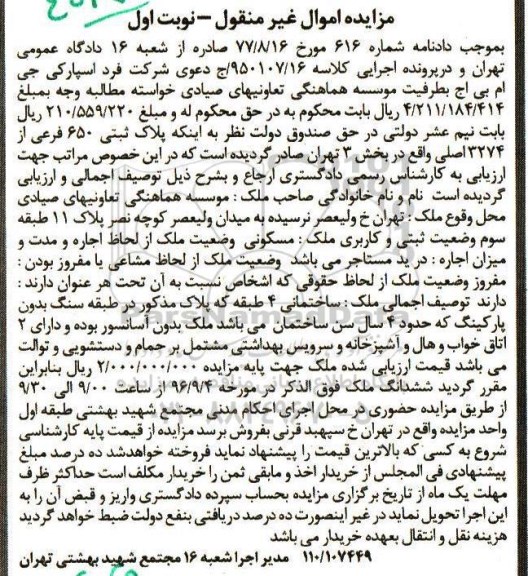 مزایده اموال غیر منقول – نوبت اول
بموجب دادنامه شماره ۶۱۶ مورخ ۷۷/۸/۱۶ صادره از شعبه ۱۶ دادگاه عمومی
تهران و درپرونده اجرایی کلاسه ۹۵۰۱۰۷/۱۶/ج دعوی شرکت فرد اسپارکی جی
ام بی اج بطرفیت موسسه هماهنگی تعاونیهای صیادی خواسته مطالبه وجه بمبلغ
۴/۲۱۱/۱۸۴/۴۱۴ ریال بابت محکوم به در حق محکوم له و مبلغ ۲۱۰/۵۵۹/۲۲۰ ریال
بابت نیم عشر دولتی در حق صندوق دولت نظر به اینکه پلاک ثبتی ۶۵۰ فرعی از
۳۲۷۴ اصلی واقع در بخش ۳ تهران صادر گردیده است که در این خصوص مراتب جهت
ارزیابی به کارشناس رسمی دادگستری ارجاع و بشرح ذیل توصیف اجمالی و ارزیابی
گردیده است نام و نام خانوادگی صاحب ملک : موسسه هماهنگی تعاونیهای صیادی
محل وقوع ملک : تهران خ ولیعصر نرسیده به میدان ولیعصر کوچه نصر پلاک ۱۱ طبقه
سوم وضعیت ثبتی و کاربری ملک : مسکونی وضعیت ملک از لحاظ اجاره و مدت و
میزان اجاره : در ید مستاجر می باشد وضعیت ملک از لحاظ مشاعی یا مفروز بودن :
مفروز وضعیت ملک از لحاظ حقوقی که اشخاص نسبت به آن تحت هر عنوان دارند :
دارند توصیف اجمالی ملک : ساختمانی ۴ طبقه که پلاک مذکور در طبقه سنگ بدون
پارکینگ که حدود ۴ سال سن ساختمان می باشد ملک بدون آسانسور بوده و دارای ۲
اتاق خواب و هال و آشپزخانه و سرویس بهداشتی مشتمل بر حمام و دستشویی و توالت
می باشد قیمت ارزیابی شده ملک جهت پایه مزایده ۲/۰۰۰/۰۰۰/۰۰۰ ریال بنابراین
مقرر گردید ششدانگ ملک فوق الذکر در مورخه ۹۶/۹/۴ از ساعت ۹/۰۰ الی ۹/۳۰
از طریق مزایده حضوری در محل اجرای احکام مدنی مجتمع شهید بهشتی طبقه اول
واحد مزایده واقع در تهران خ سپهبد قرنی بفروش برسد مزایده از قیمت پایه کارشناسی
شروع به کسی که بالاترین قیمت را پیشنهاد نماید فروخته خواهدشد ده درصد مبلغ
پیشنهادی فی المجلس از خریدار اخذ و مابقی ثمن را خریدار مکلف است حداکثر ظرف
مهلت یک ماه از تاریخ برگزاری مزایده بحساب سپرده دادگستری واریز و قبض آن را به
این اجرا تحویل نماید در غیر اینصورت ده درصد دریافتی بنفع دولت ضبط خواهد گردید
هزینه نقل و انتقال بعهده خریدار می باشد
۱۱۰/۱۰۷۴۴۹ مدیر اجرا شعبه ۱۶ مجتمع شهید بهشتی تهران